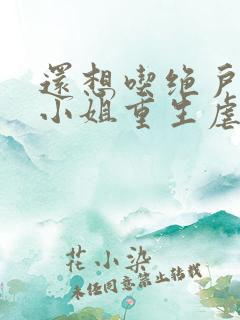 還想喫绝戶
小姐重生虐
花小染
未经同意禁止转载